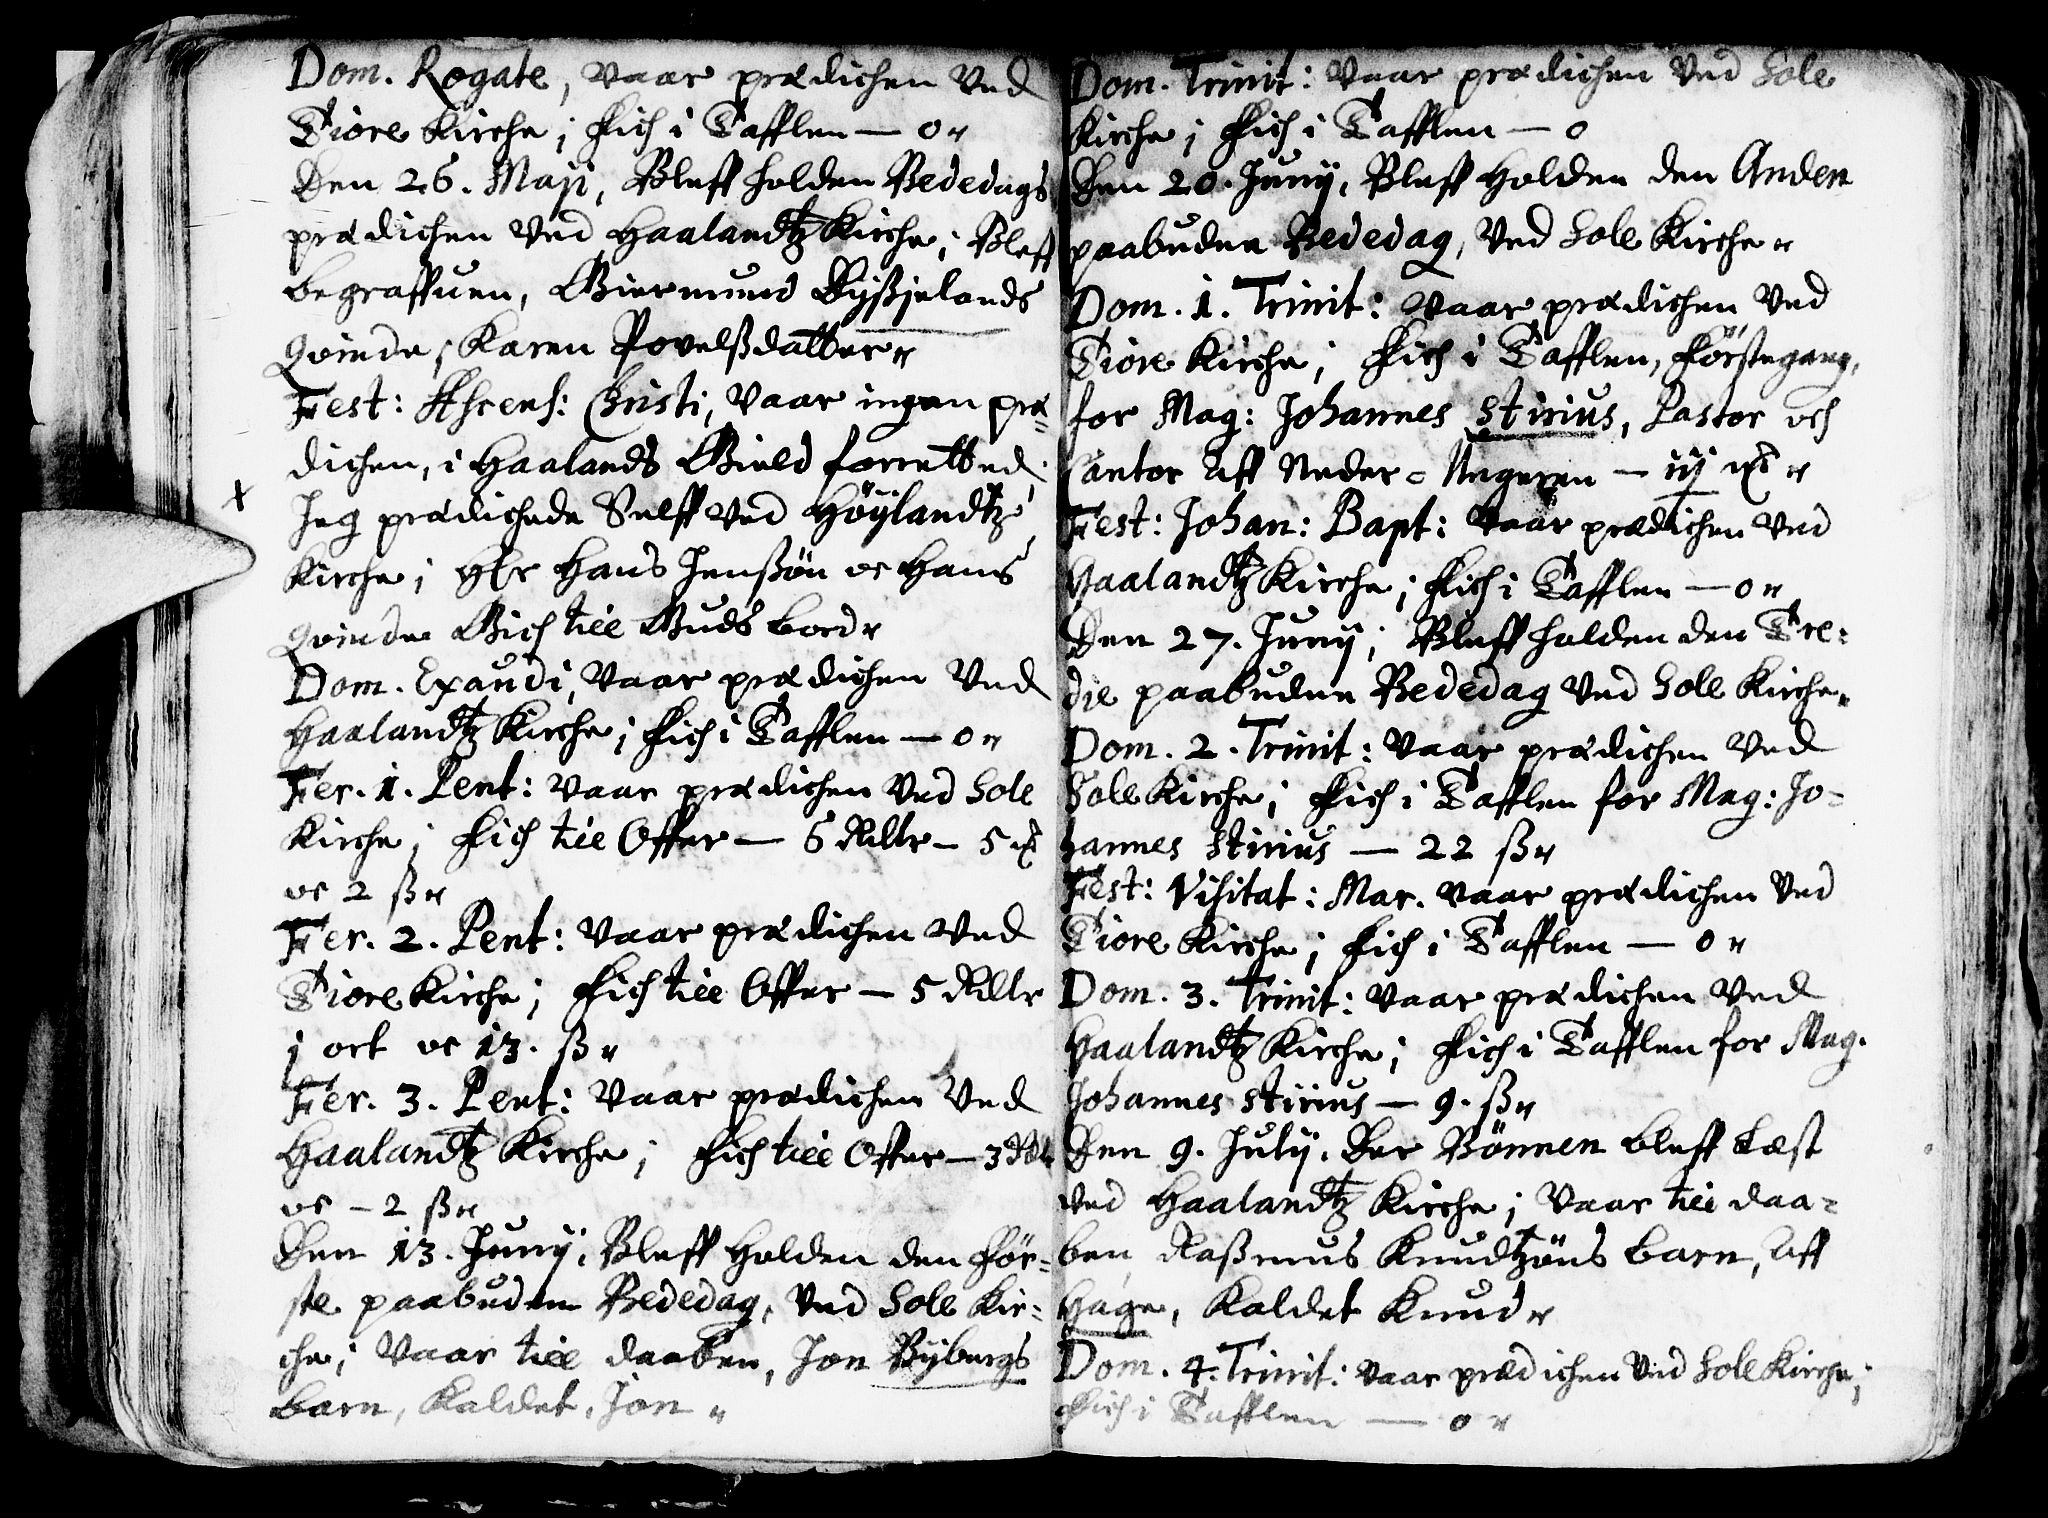 Dom. Rogate, vaar prædichen ved
Tiore Kirche; fich i Tafflen — 0 „
Den 26. Maji, Bleff holden Bededags
prædichen ved Haalandtz Kirche; Bleff
begraffuen, Giermund
Qvinde, Karen Povelßdatter „
Fest: Ascens: Christi, vaar ingen præ=
dichen, i Haalands Gield forretted;
Jeg prædichede Selff ved Höÿlandtz
Kirche; Hr Hans Jenßön oc Hans
Qvinde Gich till Guds bord „
Dom. Exaudi, vaar prædichen ved
Haalandtz Kirche; fich i Tafflen — 0 „
Fer. 1. Pent: vaar prædichen ved Sole
Kirche; fich till Offer — 6 Rdlr — 5
oc 2 ß „
Fer. 2. Pent: vaar prædichen ved
Tiore Kirche; fich till Offer — 5 Rdlr
j ort oc 13. ß „
Fer. 3. Pent: vaar prædichen ved
Haalandtz Kirche; fich till Offer — 3 Rdlr
oc — 2 ß „
Den 13. Junÿ, Bleff holden den för=
ste paabuden Bededag, ved Sole Kir=
che; vaar till daaben, Jon Rÿbergs
barn, kaldet, Jon „
Dom. Trinit: vaar prædichen ved Sole
Kirche; fich i Tafflen — 0
Den 20. Junÿ, Bleff holden den Anden
paabuden Bededag, ved Sole Kirche „
Dom. 1. Trinit: vaar prædichen ved
Tiore Kirche; fich i Tafflen, förstegang,
for Mag: Johannes Stirius, Pastor och
Cantor aff Neder = Ungeren — iij
Fest: Johan: Bapt: vaar prædichen ved
Haalandtz Kirche; fich i Tafflen — 0 „
Den 27. Junÿ; Bleff holden den Tre=
die paabuden Bededag ved Sole Kirche „
Dom. 2. Trinit: vaar prædichen ved
Sole Kirche; fich i Tafflen for Mag: Jo=
hannes Stirius — 22 ß „
Fest: Visitat: Mar. vaar prædichen ved
Tiore Kirche; fich i Tafflen — 0 „
Dom. 3. Trinit: vaar prædichen ved
Haalandtz Kirche; fich i Tafflen for Mag.
Johannes Stirius — 9. ß „
Den 9. Julÿ. Der Bönnen bleff Læst
ved Haalandtz Kirche; vaar till daa=
ben Raßmus Knudtzöns barn, aff
Hage, kaldet Knud „
Dom. 4. Trinit: vaar prædichen ved Sole Kirche;
fich i Tafflen — 0 „